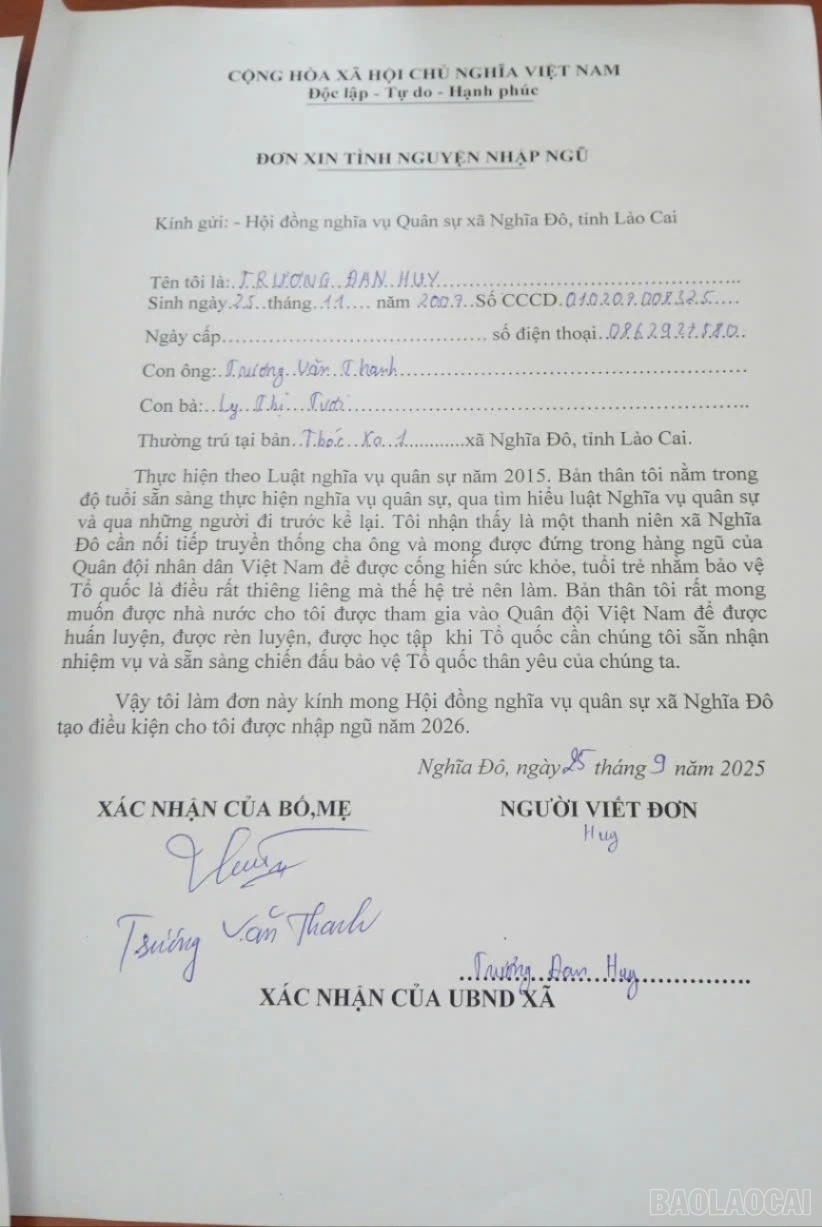 CỘNG HÒA XÃ HỘI CHỦ NGHĨA VIỆT NAM
Độc lập - Tự do - Hạnh phúc
ĐƠN XIN TÌNH NGUYỆN NHẬP NGŨ
Kính gửi: - Hội đồng nghĩa vụ Quân sự xã Nghĩa Đô, tỉnh Lào Cai
Tên tôi là: TRƯƠNG ĐAN HUY
Sinh ngày 25 tháng 11 năm 2007 Số CCCD 010207008325
Ngày cấp số điện thoại 0862927880
Con ông: Trương Văn Thanh
Con bà: Ly Thị Tươi
Thường trú tại bản Thâc Xa 1 xã Nghĩa Đô, tỉnh Lào Cai.
Thực hiện theo Luật nghĩa vụ quân sự năm 2015. Bản thân tôi nằm trong
độ tuổi sẵn sàng thực hiện nghĩa vụ quân sự, qua tìm hiểu luật Nghĩa vụ quân sự
và qua những người đi trước kể lại. Tôi nhận thấy là một thanh niên xã Nghĩa
Đô cần nối tiếp truyền thống cha ông và mong được đứng trong hàng ngũ của
Quân đội nhân dân Việt Nam để được cống hiến sức khỏe, tuổi trẻ nhằm bảo vệ
Tổ quốc là điều rất thiêng liêng mà thế hệ trẻ nên làm. Bản thân tôi rất mong
muốn được nhà nước cho tôi được tham gia vào Quân đội Việt Nam để được
huấn luyện, được rèn luyện, được học tập khi Tổ quốc cần chúng tôi sẵn nhận
nhiệm vụ và sẵn sàng chiến đấu bảo vệ Tổ quốc thân yêu của chúng ta.
Vậy tôi làm đơn này kính mong Hội đồng nghĩa vụ quân sự xã Nghĩa Đô
tạo điều kiện cho tôi được nhập ngũ năm 2026.
Nghĩa Đô, ngày 25 tháng 9 năm 2025
XÁC NHẬN CỦA BỐ,MẸ NGƯỜI VIẾT ĐƠN
Huy
Trương Văn Thanh
Trương Đan Huy
XÁC NHẬN CỦA UBND XÃ
BAOLAOCAI